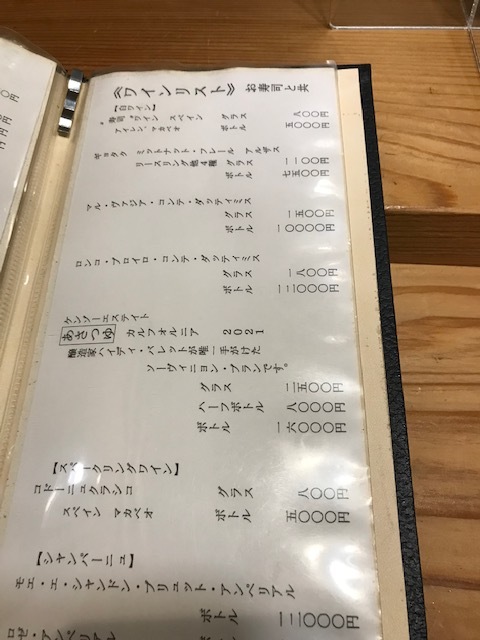 《ワインリスト》 お寿司と共
【白ワイン】
"寿司"ワイン スペイン グラス 八〇〇円
アイレン マカベオ ボトル 五〇〇〇円
ミットナット・フレール アルザス
リースリング他4種 グラス 一一〇〇円
ボトル 七五〇〇円
マル・ヴァジア・コンテ・ダッティミス
グラス 一五〇〇円
ボトル 一〇〇〇〇円
ロンコ・ブロイロ・コンテ・ダッティミス
グラス 一八〇〇円
ボトル 一二〇〇〇円
ケンゾーエステイト
あさつゆ カルフォルニア 2021
醸造家ハイディ・バレットが唯一手がけた
ソーヴィニョン・ブランです。
グラス 二五〇〇円
ハーフボトル 八〇〇〇円
ボトル 一六〇〇〇円
【スパークリングワイン】
コドーニュクランコ グラス 八〇〇円
スペイン マカベオ ボトル 五〇〇〇円
【シャンパーニュ】
モエ・エ・シャンドン・ブリュット・アンペリアル
ボトル 一二〇〇〇円
ロゼ・アンペリアル